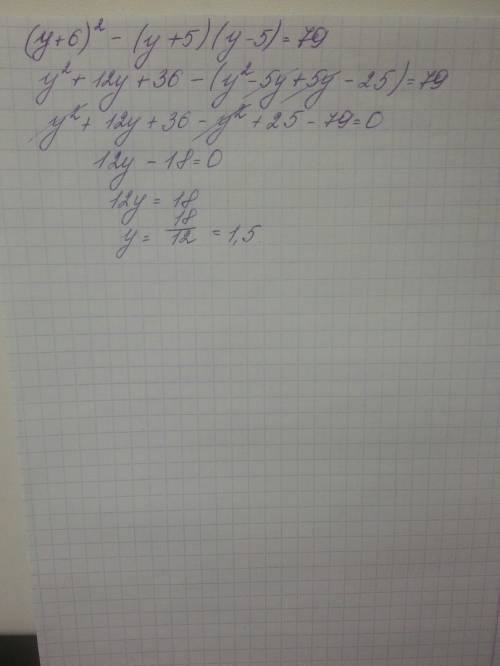 (y+6)² - (y+5)(y-5)=79
y²+12y+36-(y²-5y+5y-25)=79
y²+12y+36-y²+25-79=0
12y-18=0
12y=18
y=18/12=1,5